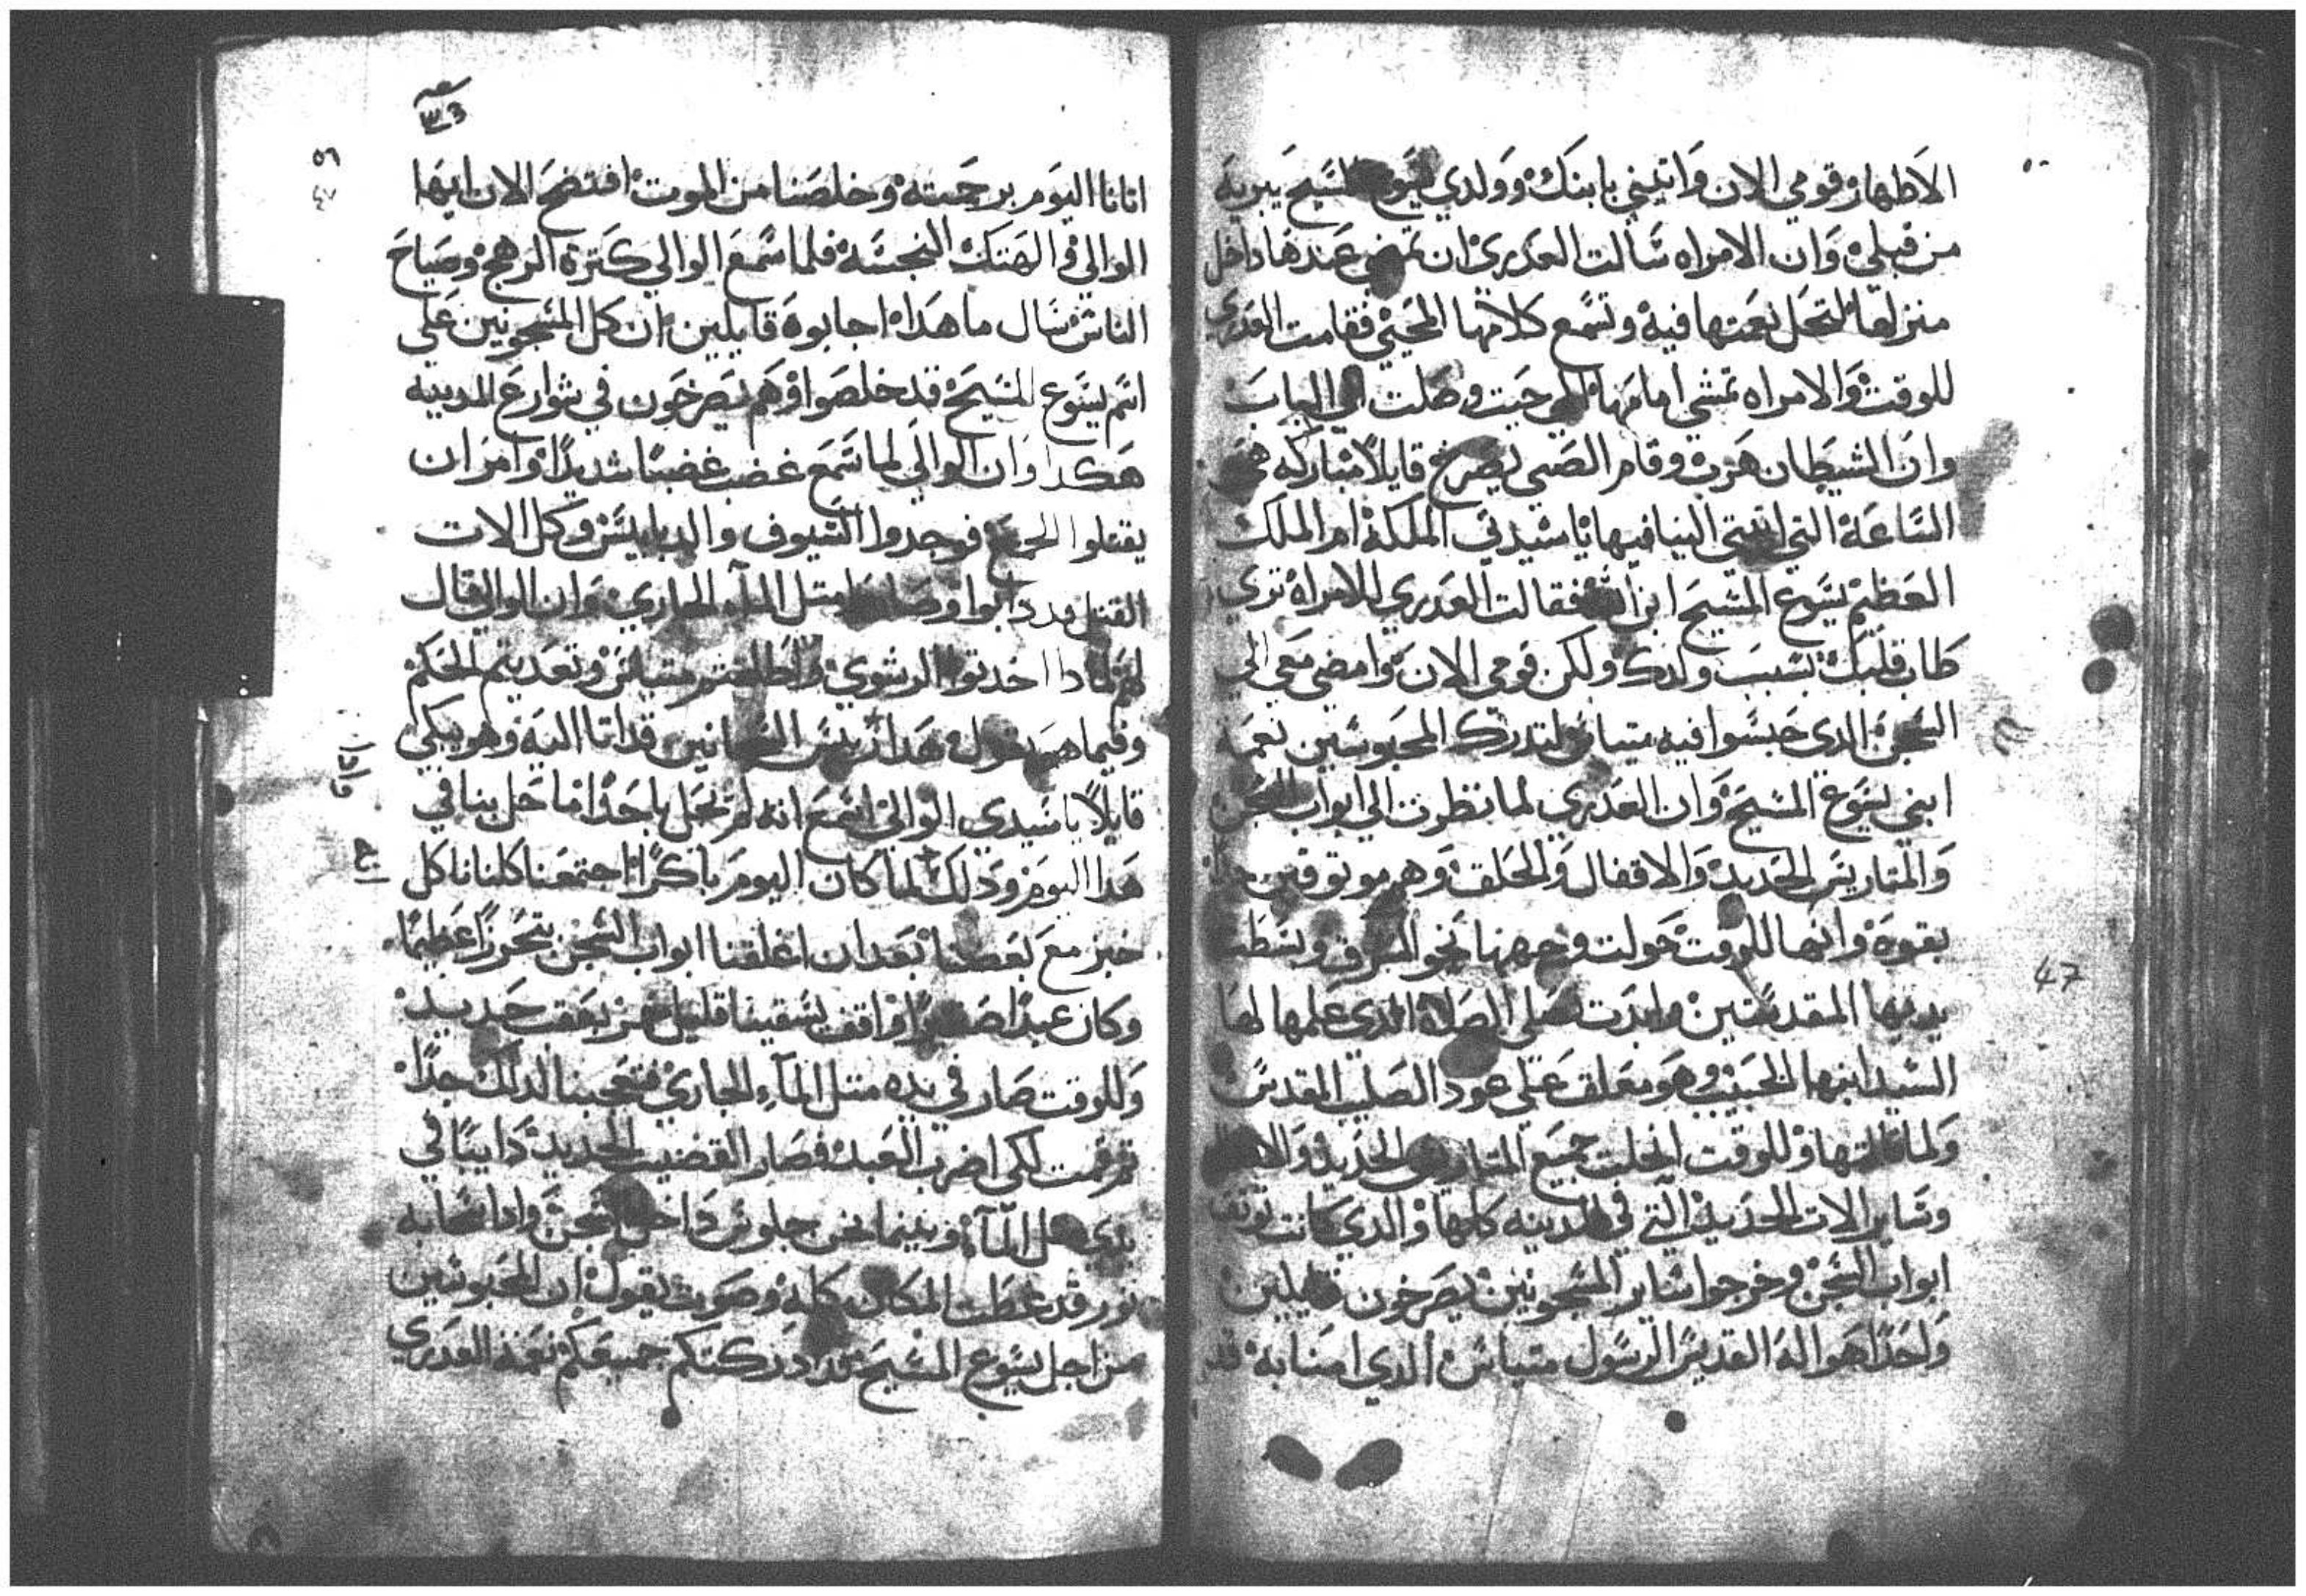 الاطهار وقومي الان واتيني بابنك وولدي يسوع المسيح يبريه
من قبلي وان الامراه سالت العدري ان تمضي عندها داخل
منزلها لتحل نعمتها فيه وتسمع كلامها المحيي فقامت العدري
للوقت والامراه تمشي امامها الي حيت وصلت الي الباب
وان الشيطان هرب وقام الصبي يصرخ قايلا مباركه هي
الساعة التي اتيتي الينا فيها يا سيدتي الملكة ام الملك
العظيم يسوع المسيح ابن الله فقالت العدري للامراه تري
طاب قلبك بسبب ولدك ولكن قومي الان وامضي معي الي
السجن الدي حبسوا فيه متياس لتدرك المحبوسين نعمة
ابني يسوع المسيح وان العدري لما نظرت الي ابواب السجن
والمتاريس الحديد والاقفال والحلق وهم موتوقين جدا
بقوة وانها للوقت حولت وجهها نحو الشرق وبسطت
يديها المقدستين وابدت تصلي الصلاة الدي علمها لها
السيد ابنها الحبيب وهو معلق علي عود الصليب المقدس
ولما قالتها وللوقت انحلت جميع المتاريس الحديد والاقفال
وساير الات الحديد التي في المدينه كلها والدي كانت توتق
ابواب السجن وخرجوا ساير المسجونين يصرخون قايلين
واحدا هو اله القديس الرسول متياس الدي امنا به قد
٣٦
٥٦
٤٧
اتانا اليوم برحمته وخلصنا من الموت افتضح الان ايها
الوالي والهتك النجسه فلما سمع الوالي كترة الرهج وصياح
الناس سال ما هدا اجابوه قايلين ان كل المسجونين علي
اسم يسوع المسيح قد خلصوا وهم يصرخون في شوارع المدينه
هكدا وان الوالي لما سمع غضب غضبا شديدا وامر ان
يقتلوا الجميع فوجدوا السيوف والدبابيس وكل الات
القتل قد دابوا وصاروا متل الماء الجاري وان الوالي قال
لهم لمادا اخدتوا الرشوي واطلقتم متياس وتعديتم الحكم
وفيما هو يقول هدا ريس السجانين قد اتا اليه وهو يبكي
قايلا يا سيدي الوالي اسمع انه لم يحل باحد ما حل بنا في
هدا اليوم ودلك لما كان اليوم باكرا اجتمعنا كلنا ناكل
خبز مع بعضنا بعد ان اغلقنا ابواب السجن بتحرز عظيما
وكان عبدا صغيرا واقف يسقينا قليل خمر بحقب حديد
وللوقت صار في يده متل الماء الجاري فتعجبنا لدلك جدا
تم قمت لكي اضرب العبد فصار القضيب الحديد دايبا في
يدي متل الماء وبينما نحن جلوس داخل السجن وادا سحابه
نور قد غطت المكان كله وصوت يقول ان المحبوسين
من اجل يسوع المسيح قد ادركتكم جميعكم نعمة العدري
47